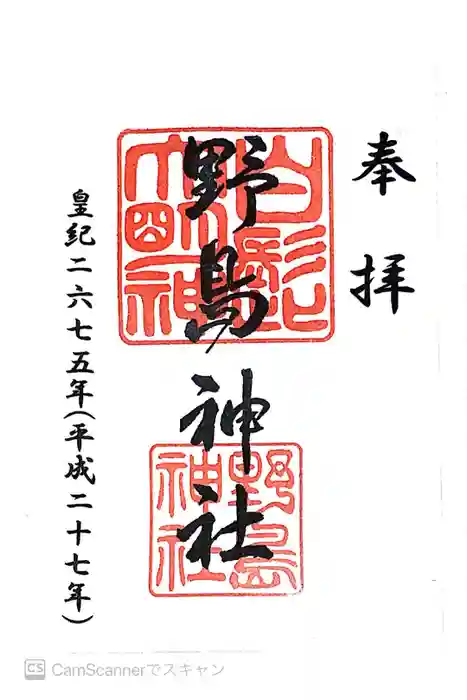 奉拝
野島神社
野島
神社
皇紀二六七五年(平成二十七年)
CS CamScannerでスキャン